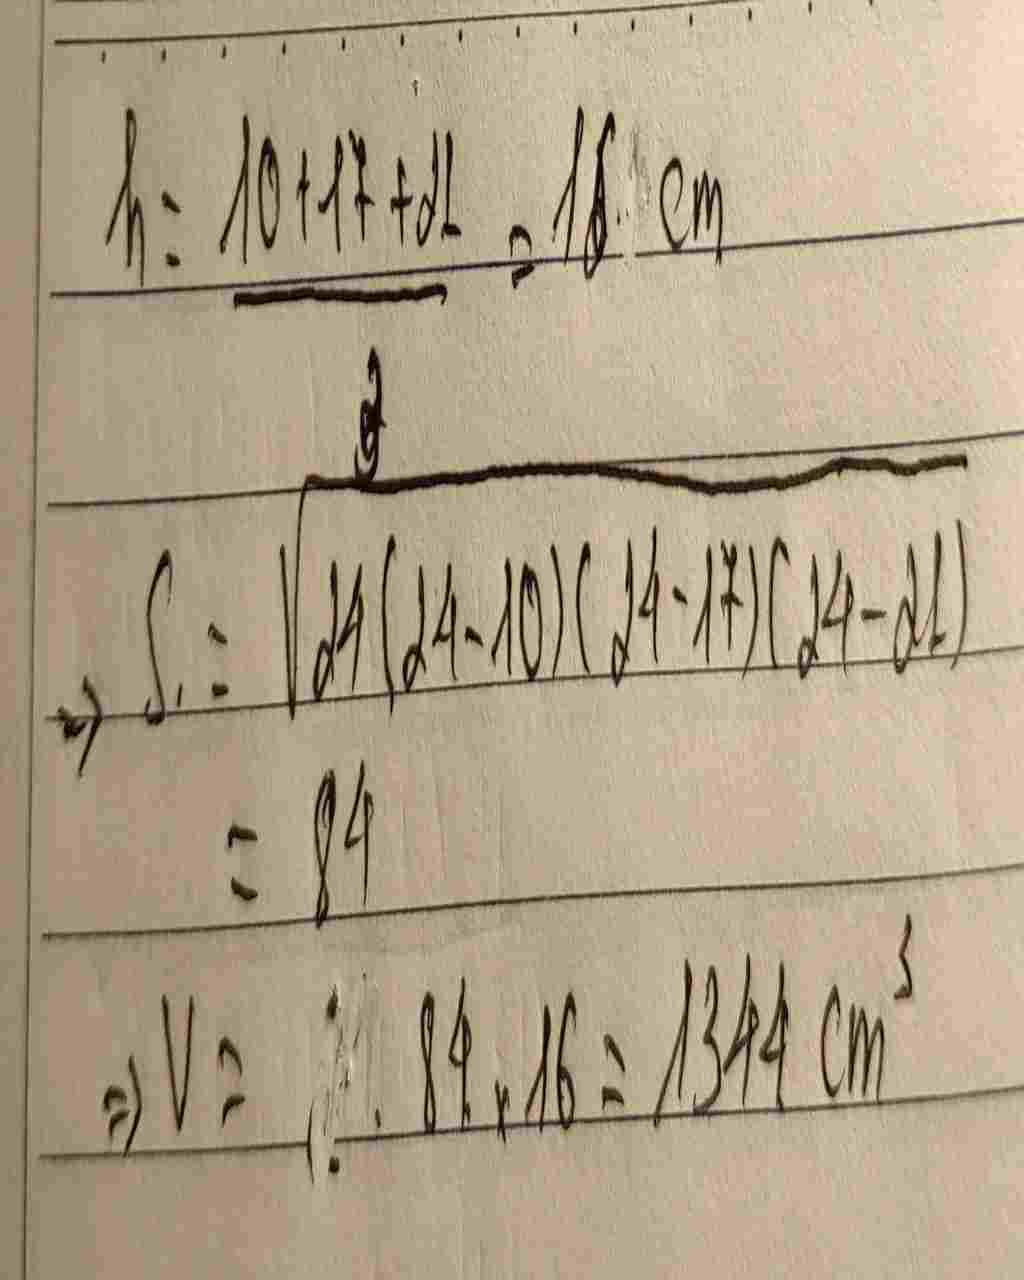 h = 10+17+21 = 16 cm
3
⇒ S = √24(24-10)(24-17)(24-21)
= 84
⇒ V = 84 x 16 = 1344 cm³